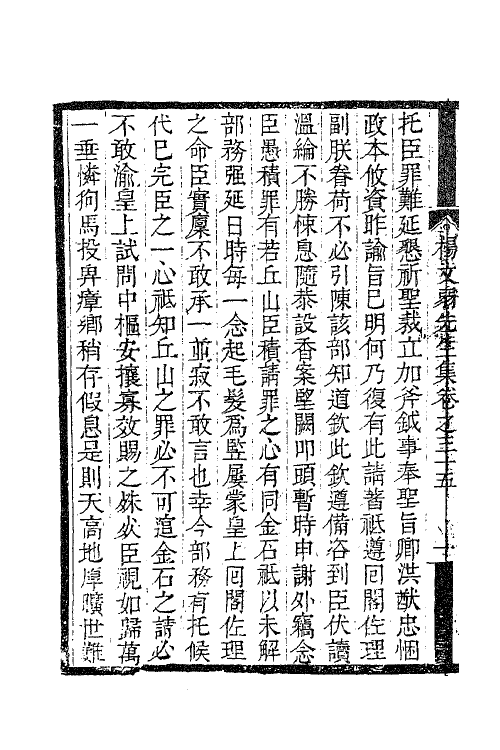 楊文弱先生集卷之三十五
托臣罪難延懇祈聖裁立加斧鉞事奉聖旨卿洪猷忠悃
政本攸資昨諭旨已明何乃復有此請著祗遵囘閣佐理
副朕眷荷不必引陳該部知道欽此欽遵備咨到臣伏讀
溫綸不勝悚息隨恭設香案望闕叩頭暫時申謝外竊念
臣愚積罪有若丘山臣積請罪之心有同金石祗以未解
部務强延日時每一念起毛髮爲竪屢蒙皇上囘閣佐理
之命臣實廩不敢承一並寂不敢言也幸今部務有托候
代已完臣之一心祗知丘山之罪必不可逭金石之請必
不敢渝皇上試問中樞安攘寡效賜之誅必臣視如歸萬
一垂憐狗馬投畀瘴鄉稍存假息是則天高地厚曠世難